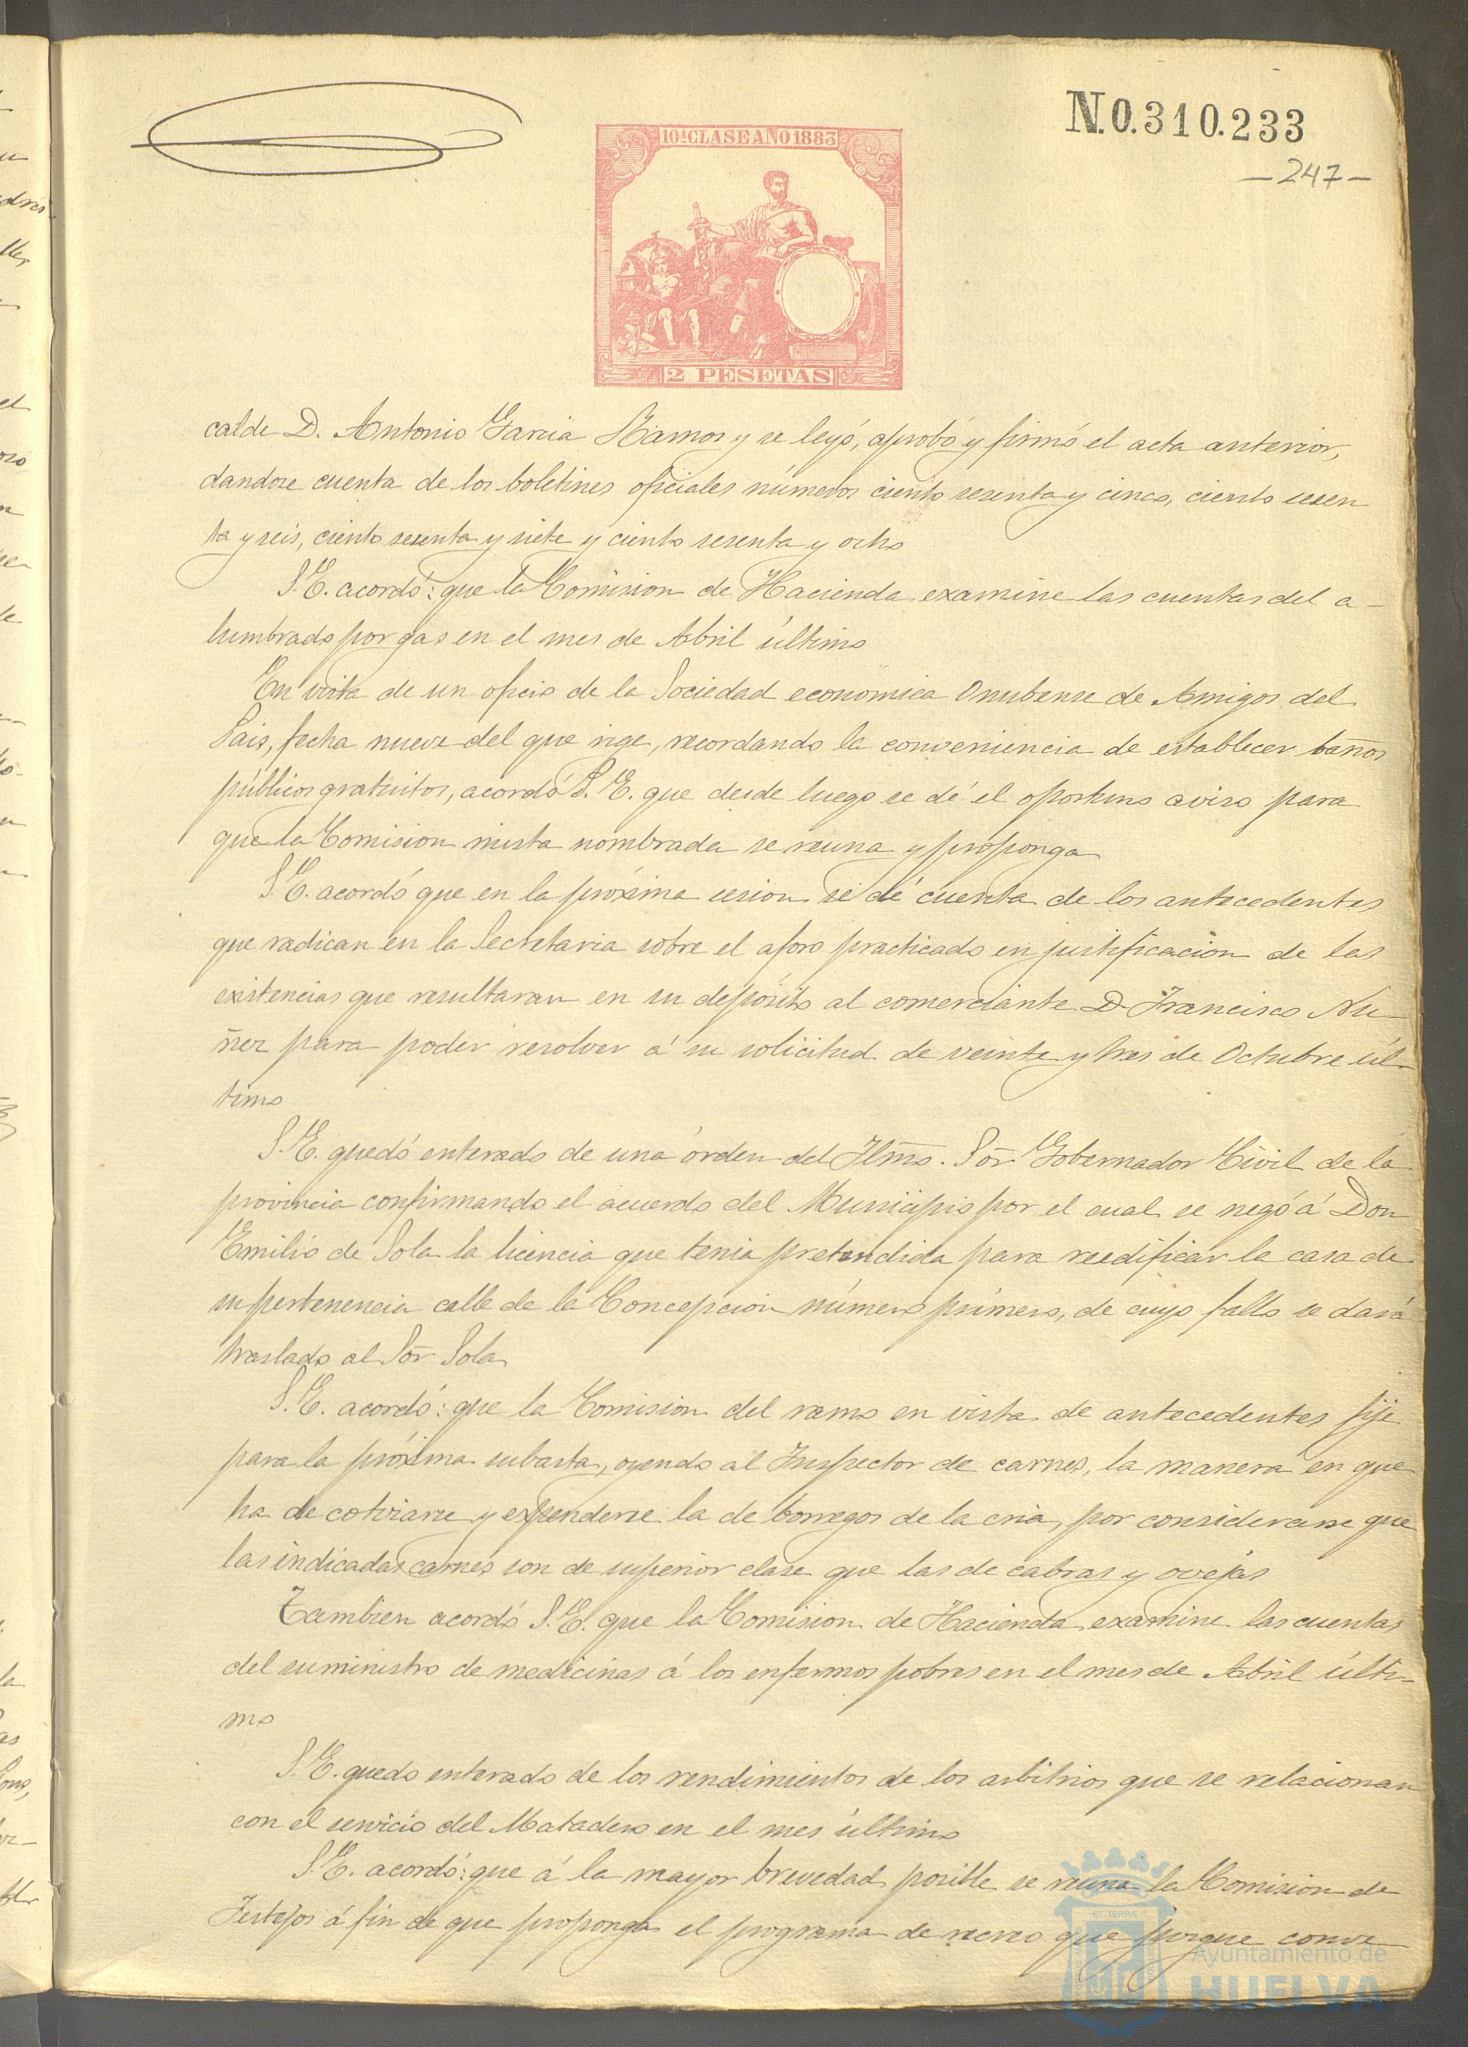 N.0.310.233
—247—
10ª CLASE AÑO 1883
2 PESETAS
calde D. Antonio Garcia Ramos y se leyó, aprobó y firmó el acta anterior,
dandose cuenta de los boletines oficiales números ciento sesenta y cinco, ciento sesen
ta y seis, ciento sesenta y siete y ciento sesenta y ocho
S. E. acordó: que la Comision de Hacienda examine las cuentas del a-
lumbrado por gas en el mes de Abril último
En vista de un oficio de la Sociedad económica Onubense de Amigos del
Pais, fecha nueve del que rige, recordando la conveniencia de establecer baños
públicos gratuitos, acordó S. E. que desde luego se dé el oportuno aviso para
que la Comision mista nombrada se reuna y proponga
S. E. acordó que en la próxima sesion se dé cuenta de los antecedentes
que radican en la Secretaria sobre el aforo practicado en justificacion de las
existencias que resultaran en su depósito al comerciante D. Francisco Nu-
ñez para poder resolver á su solicitud de veinte y tres de Octubre úl-
timo
S. E. quedó enterado de una órden del Ilmo. Sor Gobernador Civil de la
provincia confirmando el acuerdo del Municipio por el cual se negó á Don
Emilio de Sola la licencia que tenia pretendida para reedificar la casa de
su pertenencia calle de la Concepcion número primero, de cuyo fallo se dará
traslado al Sor Sola
S. E. acordó: que la Comision del ramo en vista de antecedentes fije
para la próxima subasta, oyendo al Inspector de carnes, la manera en que
ha de cotizarse y expenderse la de borregos de la cria, por considerarse que
las indicadas carnes son de superior clase que las de cabras y ovejas
Tambien acordó S. E. que la Comision de Hacienda examine las cuentas
del suministro de medicinas á los enfermos pobres en el mes de Abril últi-
mo
S. E. quedo enterado de los rendimientos de los arbitrios que se relacionan
con el servicio del Matadero en el mes último
S. E. acordó: que á la mayor brevedad posible se reuna la Comision de
Festejos á fin de que proponga el programa de recreo que juzgue conve
Ayuntamiento de
HUELVA